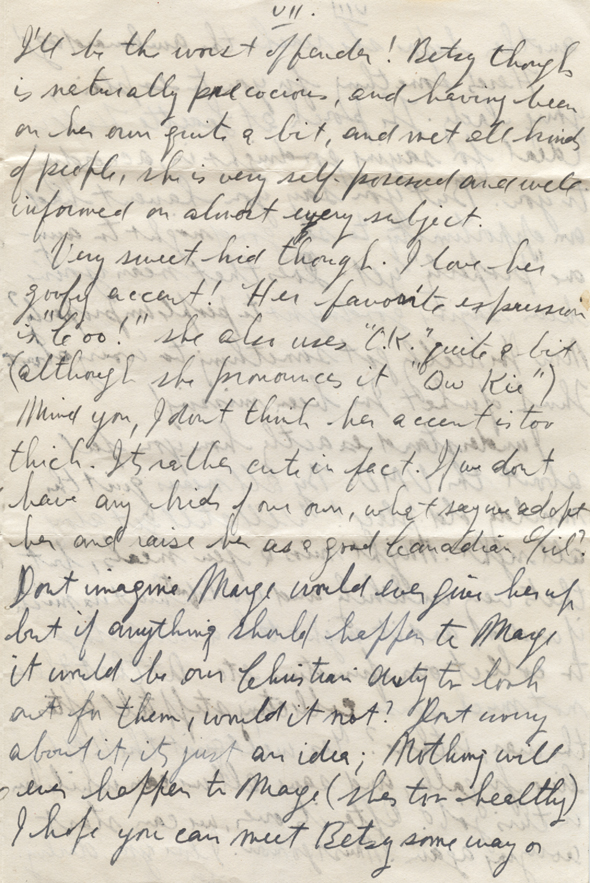 VII.
I'll be the worst offender! Betsy though
is naturally precocious, and having been
on her own quite a bit, and met all kinds
of people, she is very self-posessed and well-
informed on almost every subject.
Very sweet kid though. I love her
goofy accent! Her favorite expression
is "Coo!" she also uses "O.K." quite a bit
(although she pronounces it "Ow Kie")
Mind you, I dont think her accent is too
thick. Its rather cute in fact. If we dont
have any kids of our own, what say we adopt
her and raise her as a good Canadian Girl?
Dont imagine Marge would ever give her up
but if anything should happen to Marge
it would be our Christian duty to look
out for them, would it not? Dont worry
about it, its just an idea; Nothing will
ever happen to Marge (shes too healthy)
I hope you can meet Betsy some way or